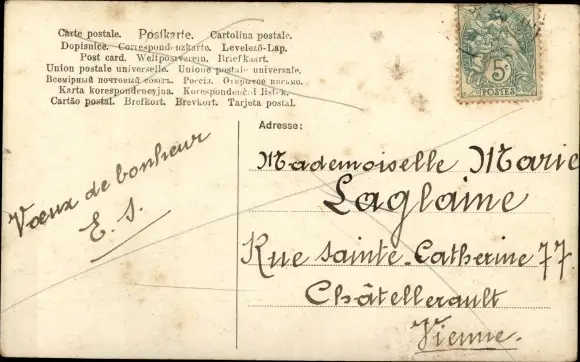 Carte postale. Postkarte. Cartolina postale.
Dopisnice. Correspondenzkarte. Levelező-Lap.
Post card. Weltpostverein. Briefkaart.
Union postale universelle. Unione postale universale.
Всемірный почтовый союзъ. Россія. Открытое письмо.
Karta korespondencyjna. Korespondenční lístek.
Cartão postal. Brefkort. Brevkort. Tarjeta postal.
5c
POSTES
Adresse:
Vœux de bonheur
E. S.
Mademoiselle Marie
Laglaine
Rue Sainte-Catherine 77
Châtellerault
Vienne.